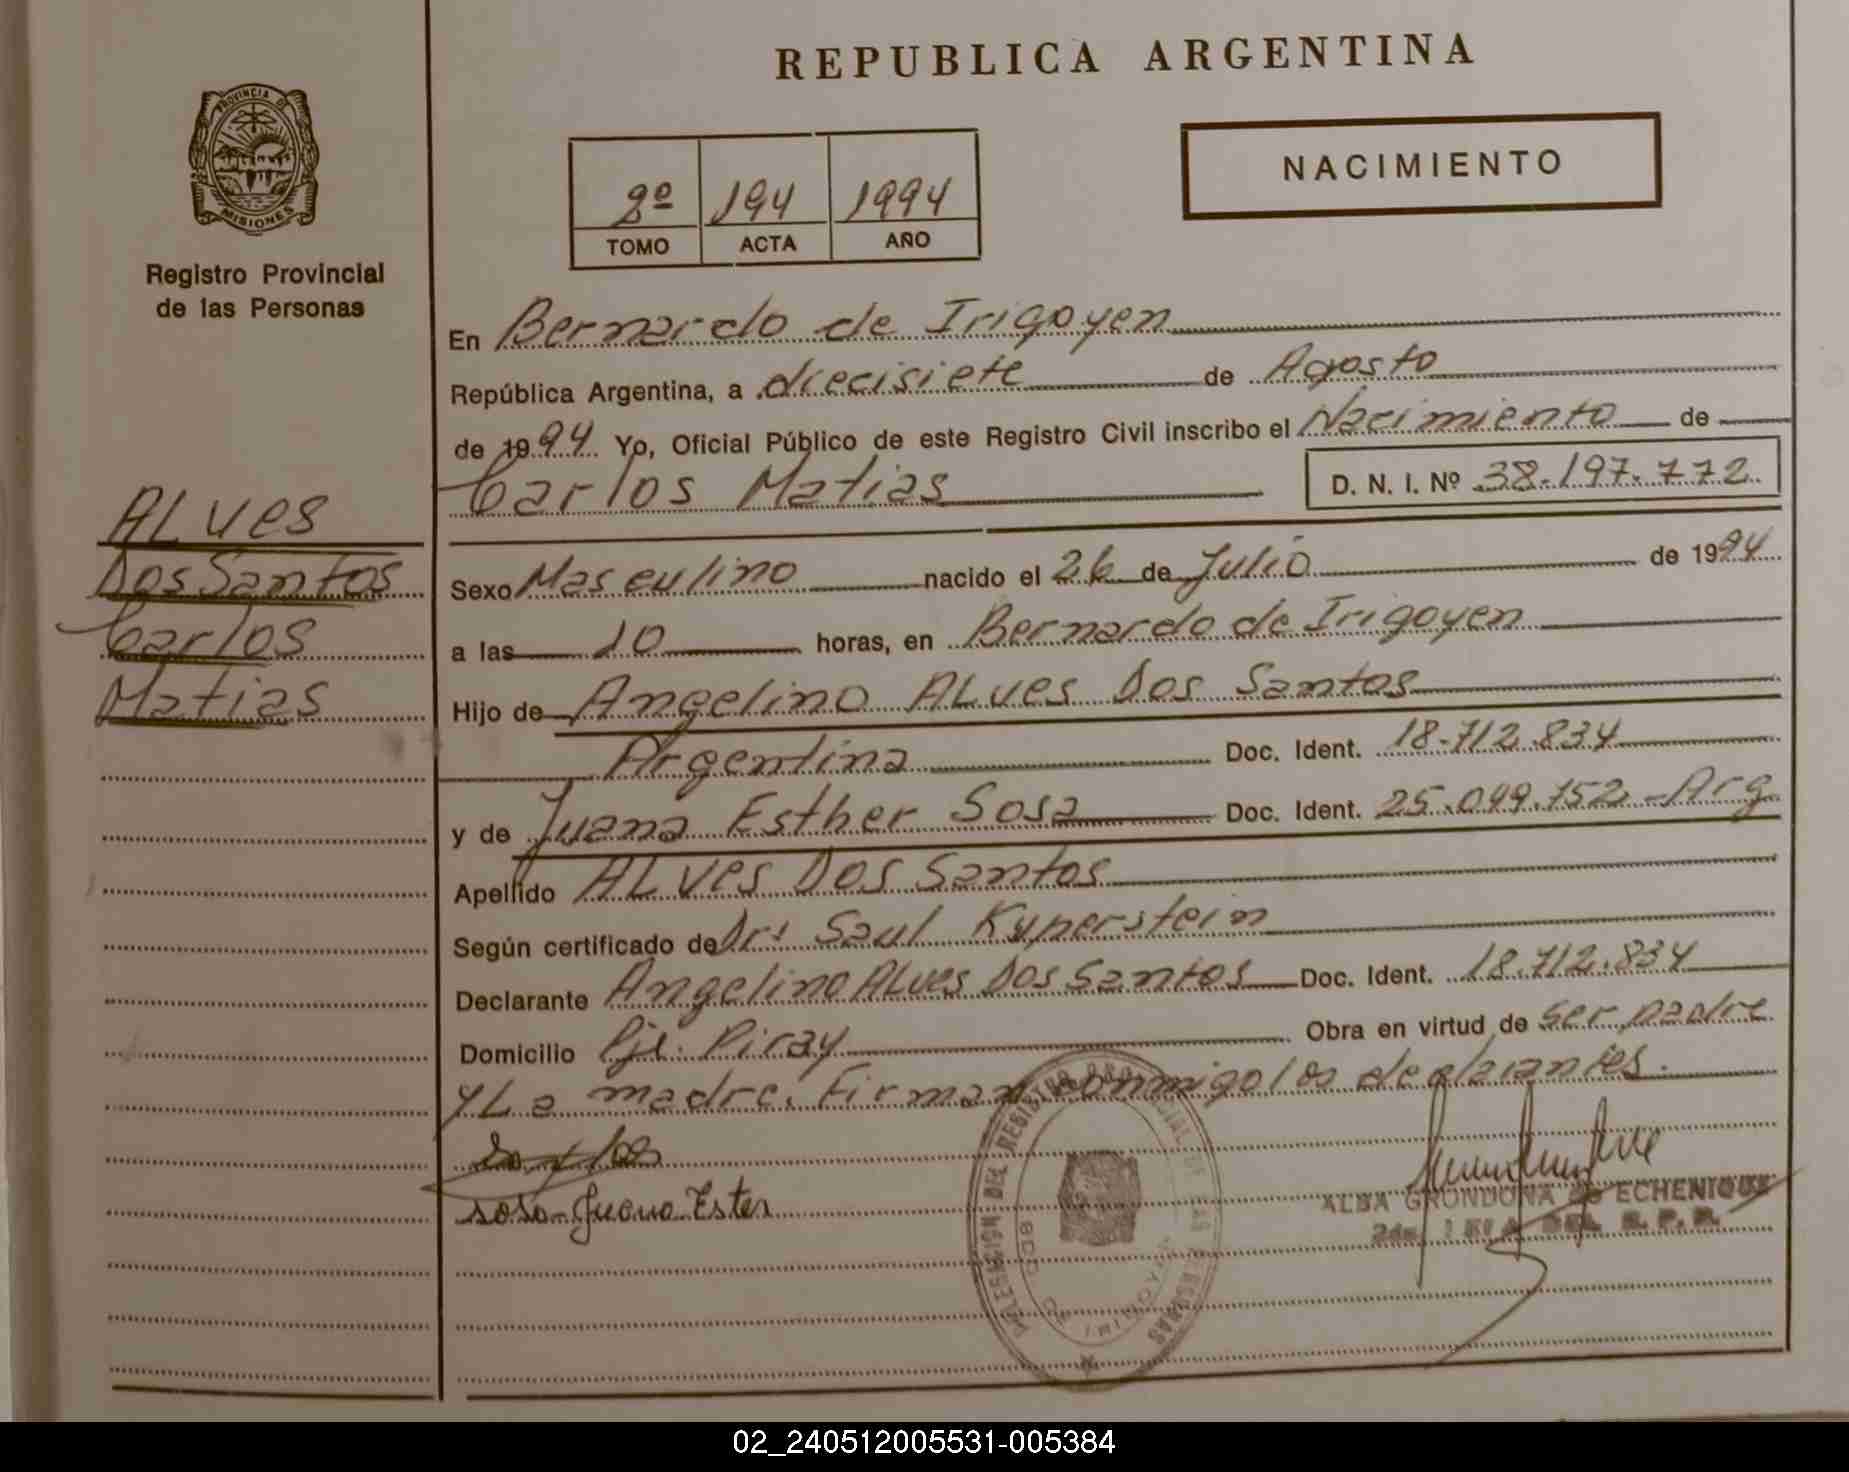 REPUBLICA ARGENTINA
PROVINCIA DE
MISIONES
Registro Provincial
de las Personas
NACIMIENTO
2º 194 1994
TOMO ACTA AÑO
En Bernardo de Irigoyen
República Argentina, a diecisiete de Agosto
de 1994. Yo, Oficial Público de este Registro Civil inscribo el Nacimiento de
Carlos Matias D. N. I. Nº 38.197.772
ALves
Dos Santos
Carlos
Matias
Sexo Masculino nacido el 26 de Julio de 1994
a las 10 horas, en Bernardo de Irigoyen
Hijo de Angelino ALves Dos Santos
Argentina Doc. Ident. 18.712.834
y de Juana Esther Sosa Doc. Ident. 25.099.752 - Arg
Apellido ALves Dos Santos
Según certificado de Dr: Saul Kyperstein
Declarante Angelino ALves Dos Santos Doc. Ident. 18.712.834
Domicilio Pje. Piray Obra en virtud de ser padre
y La madre. Firman conmigo los declarantes.
Sosa Juana Ester
DELEGACION DEL REGISTRO PROVINCIAL DE LAS PERSONAS
BDO. DE IRIGOYEN
ALBA GRONDONA de ECHENIQUE
02_240512005531-005384